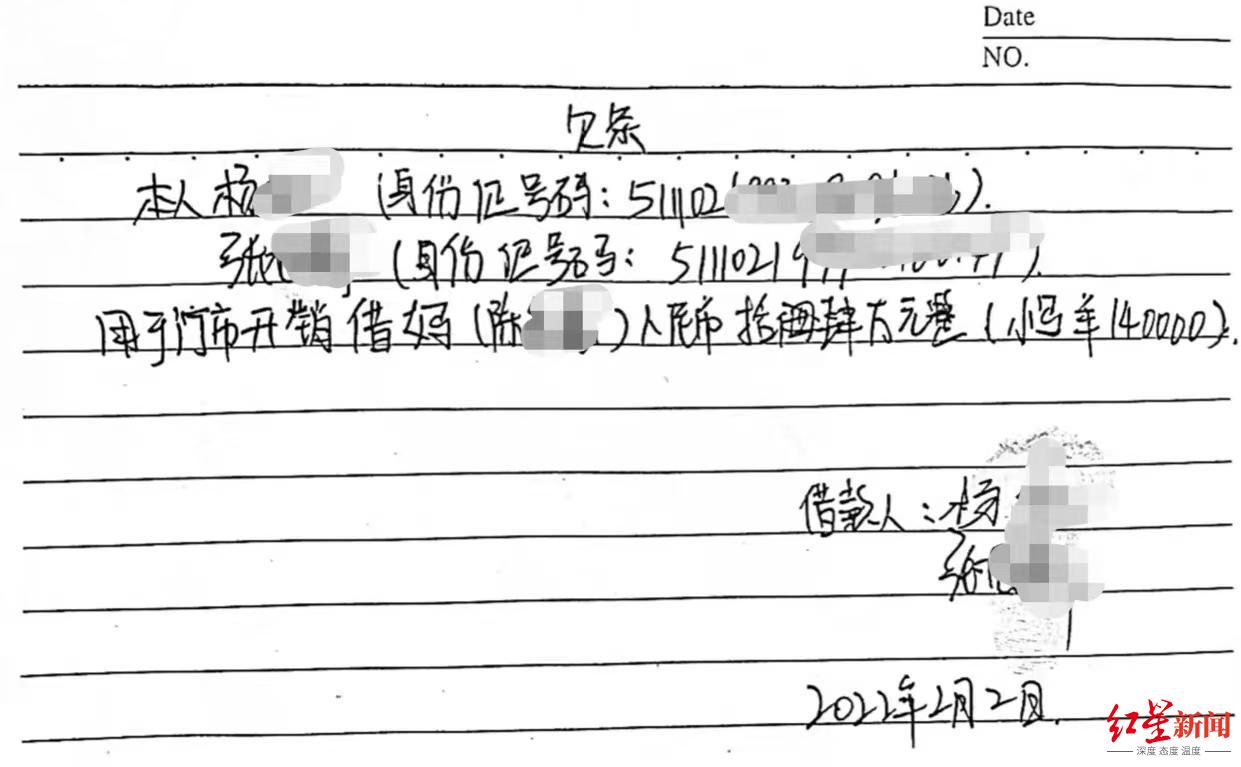 Date
NO.
欠条
本人杨 (身份证号码: 511102 ).
张 (身份证号码: 5111021 ).
用于门市开销借妈(陈 )人民币拾肆万元整(小写羊140000).
借款人:杨
张
2022年2月2日.
红星新闻
深度 态度 温度